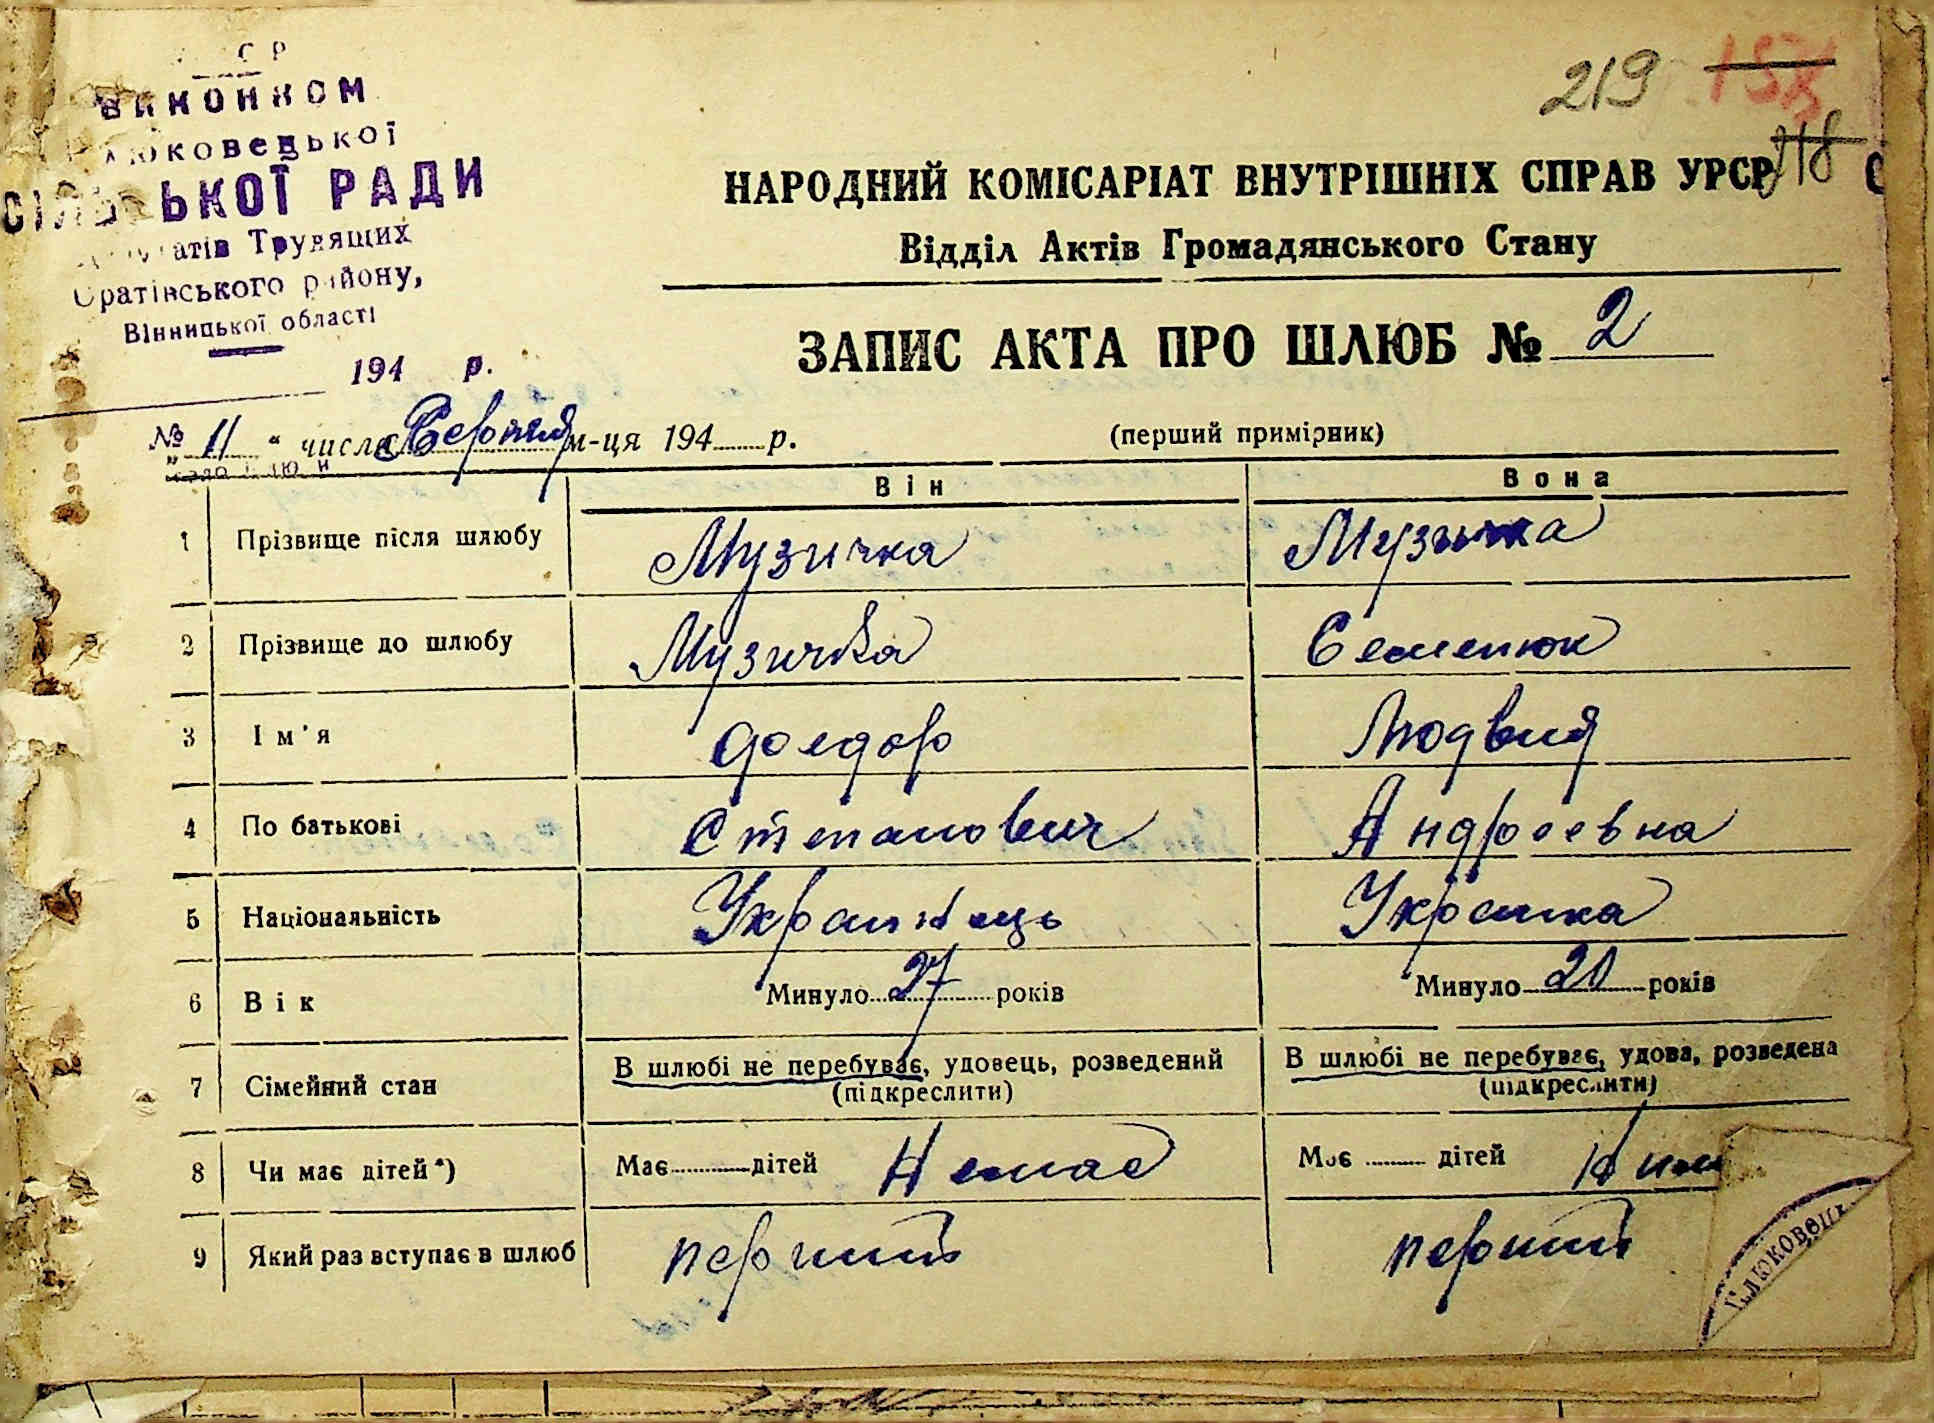 С Р
ВИКОНКОМ
юковецької
СІЛЬСЬКОЇ РАДИ
депутатів Трудящих
Оратівського району,
Вінницької області
194 р.
219
218
НАРОДНИЙ КОМІСАРІАТ ВНУТРІШНІХ СПРАВ УРСР
Відділ Актів Громадянського Стану
ЗАПИС АКТА ПРО ШЛЮБ № 2
№ „ 11 “ числа Серпня м-ця 194 р.
(перший примірник)
Він Вона
1 Прізвище після шлюбу Музичка Музичка
2 Прізвище до шлюбу Музичка Семенюк
3 Ім'я Федор Людвия
4 По батькові Степанович Андреевна
5 Національність Українець Украинка
6 Вік Минуло 27 років Минуло 20 років
7 Сімейний стан В шлюбі не перебуває, удовець, розведений В шлюбі не перебуває, удова, розведена
(підкреслити) (підкреслити)
8 Чи має дітей*) Має дітей Немає Має дітей
9 Який раз вступає в шлюб перший перший